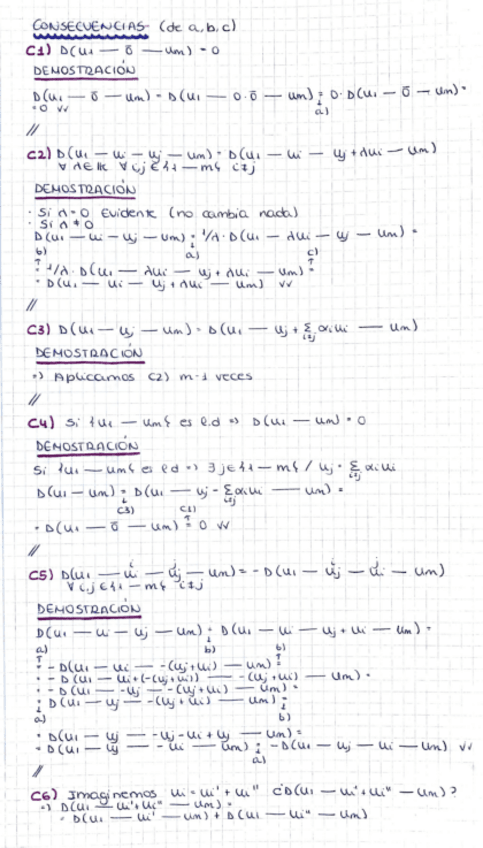 CONSECUENCIAS (de a,b,c)
C1) D(u₁ — ō — um) = 0
DEMOSTRACIÓN
D(u₁ — ō — um) = D(u₁ — 0·ō — um) = 0·D(u₁ — ō — um) =
a)
= 0 vv
//
C2) D(u₁ — ui — uj — um) = D(u₁ — ui — uj + λui — um)
∀ λ ∈ K ∀ i,j ∈ {1 — m} i≠j
DEMOSTRACIÓN
· Si λ=0 Evidente (no cambia nada)
· Si λ≠0
D(u₁ — ui — uj — um) = 1/λ · D(u₁ — λui — uj — um) =
b) a) c)
= 1/λ · D(u₁ — λui — uj + λui — um) =
= D(u₁ — ui — uj + λui — um) vv
//
C3) D(u₁ — uj — um) = D(u₁ — uj + Σ αiui — um)
i≠j
DEMOSTRACIÓN
=) Aplicamos C2) m-1 veces
//
C4) Si {u₁ — um} es l.d => D(u₁ — um) = 0
DEMOSTRACIÓN
Si {u₁ — um} es l.d => ∃ j∈{1 — m} / uj = Σ αiui
i≠j
D(u₁ — um) = D(u₁ — uj - Σ αiui — um) =
C3) C1)
= D(u₁ — ō — um) = 0 vv
//
C5) D(u₁ — ui — uj — um) = - D(u₁ — uj — ui — um)
∀ i,j ∈ {1 — m} i≠j
DEMOSTRACIÓN
D(u₁ — ui — uj — um) = D(u₁ — ui — uj + ui — um) =
a) b) b)
= - D(u₁ — ui — -(uj+ui) — um) =
= - D(u₁ — ui+(-(uj+ui)) — -(uj+ui) — um) =
= - D(u₁ — -uj — -(uj+ui) — um) =
= D(u₁ — uj — -(uj+ui) — um) =
a) b)
= D(u₁ — uj — -uj-ui+uj — um) =
= D(u₁ — uj — -ui — um) = -D(u₁ — uj — ui — um) vv
a)
//
C6) Imaginemos ui = ui' + ui'' ¿D(u₁ — ui'+ui'' — um)?
=) D(u₁ — ui'+ui'' — um) =
= D(u₁ — ui' — um) + D(u₁ — ui'' — um)